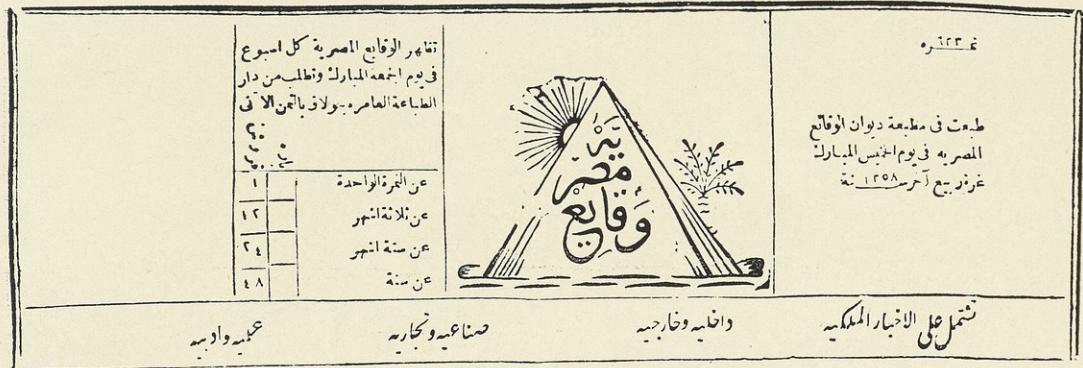 نمره ٦٢٣
طبعت فى مطبعة ديوان الوقائع
المصريه فى يوم الخميس المبارك
غرة ربيع آخر سنة ١٢٥٨
وقايع
مصريه
تظهر الوقايع المصرية كل اسبوع
فى يوم الجمعة المبارك وتطلب من دار
الطباعة العامره ببولاق بالثمن الآتى
عن النمرة الواحدة ١
عن ثلاثة اشهر ١٢
عن ستة اشهر ٢٤
عن سنة ٤٨
تشتمل على الاخبار الملكيه داخليه وخارجيه صناعيه وتجاريه علميه وادبيه